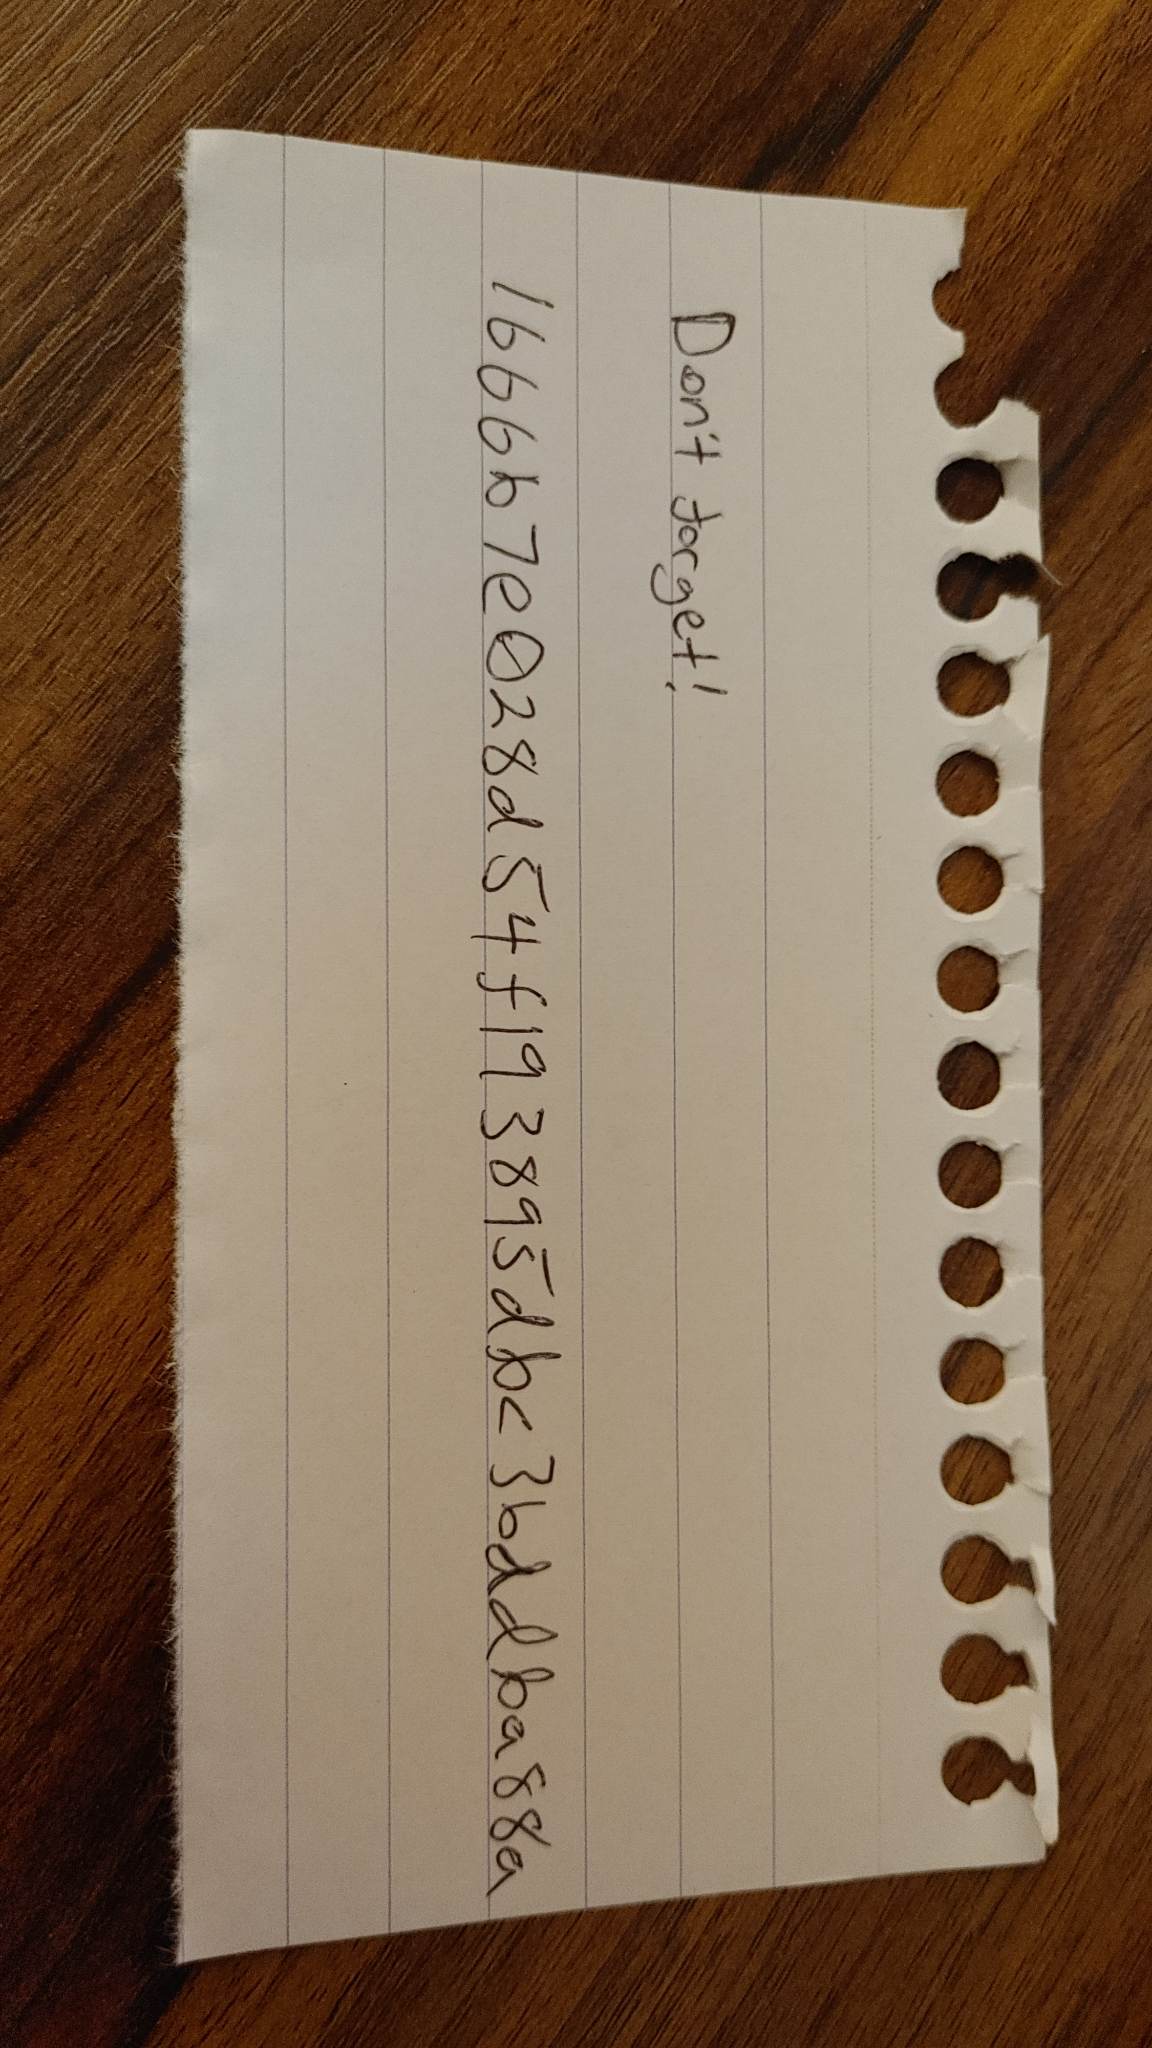 Don't forget!
1666b7e028d54f193895dbc3bddba88a